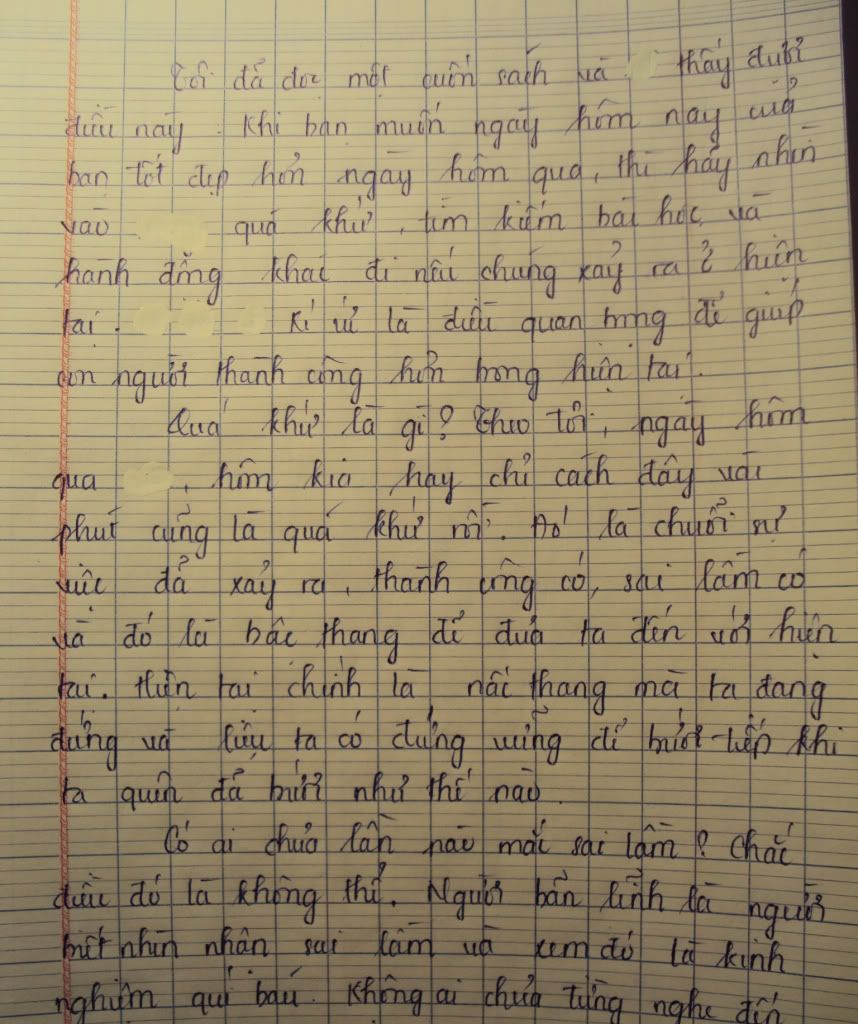 Tôi đã đọc một cuốn sách và thấy được
điều này. Khi bạn muốn ngày hôm nay của
bạn tốt đẹp hơn ngày hôm qua, thì hãy nhìn
vào quá khứ, tìm kiếm bài học và
hành động khác đi nếu chúng xảy ra ở hiện
tại. Kí ức là điều quan trọng để giúp
con người thành công hơn trong hiện tại.
Quá khứ là gì? Theo tôi, ngày hôm
qua, hôm kia hay chỉ cách đây vài
phút cũng là quá khứ rồi. Đó là chuỗi sự
việc đã xảy ra, thành công có, sai lầm có
và đó là bậc thang để đưa ta đến với hiện
tại. Hiện tại chính là nấc thang mà ta đang
đứng và liệu ta có đứng vững để bước tiếp khi
ta quên đã bước như thế nào.
Có ai chưa lần nào mắc sai lầm? Chắc
điều đó là không thể. Người bản lĩnh là người
biết nhìn nhận sai lầm và xem đó là kinh
nghiệm quí báu. Không ai chưa từng nghe đến